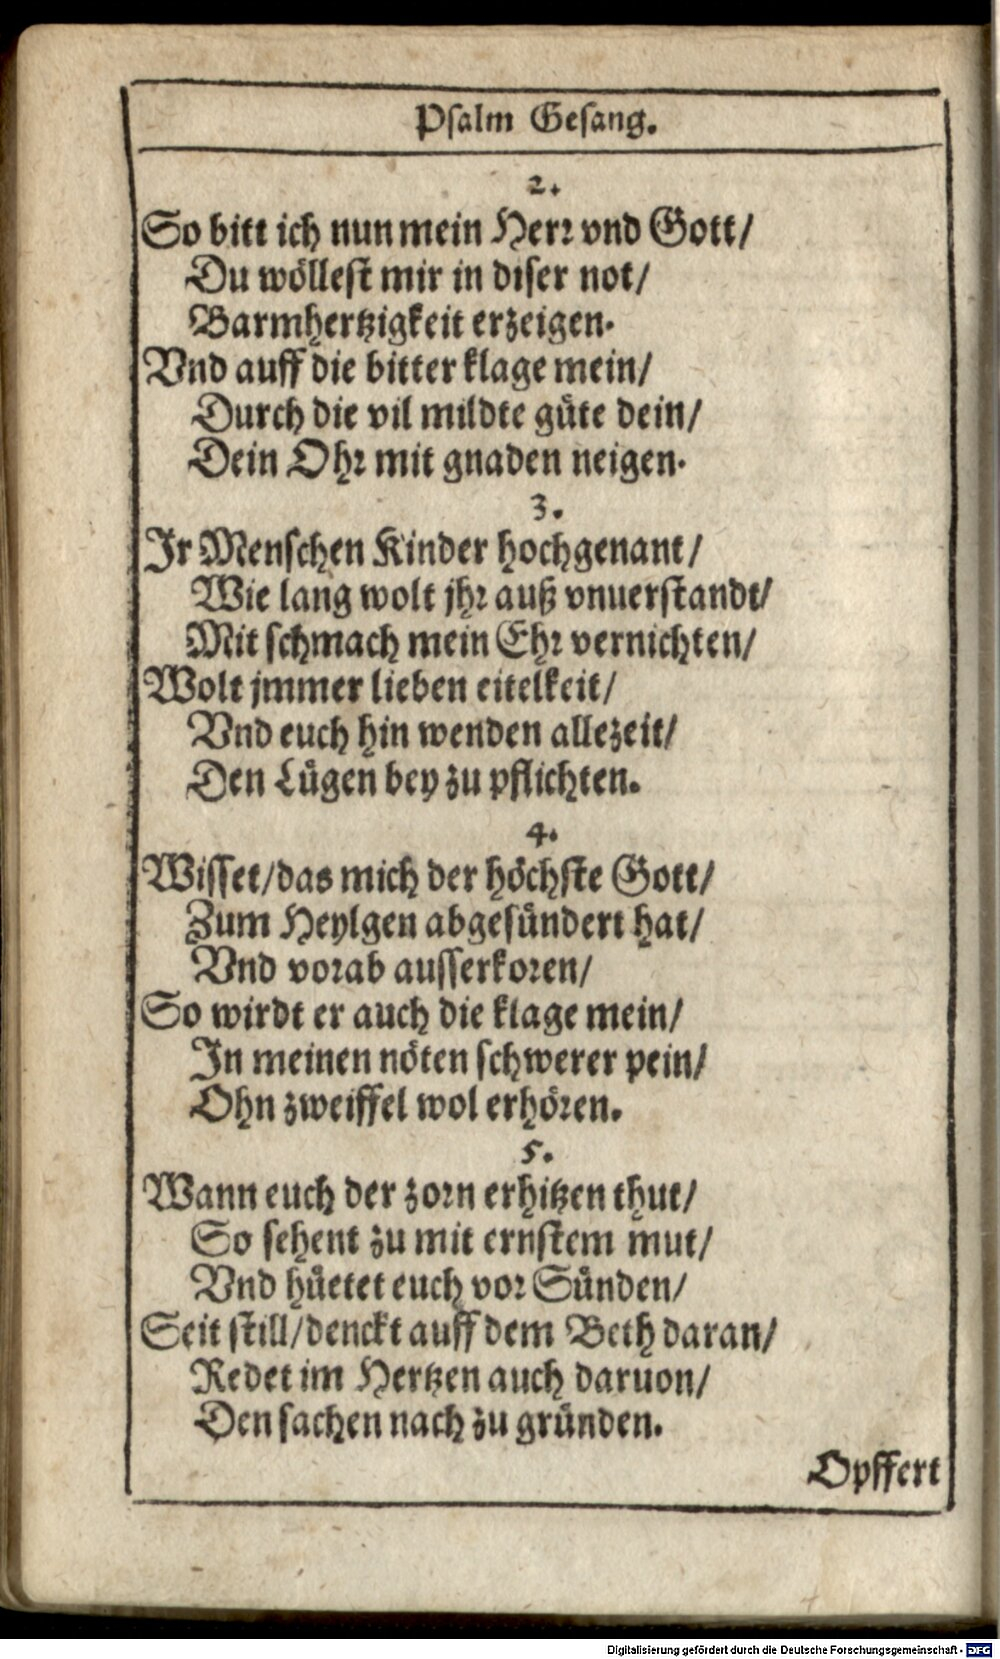 Psalm Gesang.
2.
So bitt ich nun mein Herr vnd Gott/
Du wöllest mir in diser not/
Barmhertzigkeit erzeigen.
Vnd auff die bitter klage mein/
Durch die vil mildte güte dein/
Dein Ohr mit gnaden neigen.
3.
Ir Menschen Kinder hochgenant/
Wie lang wolt jhr auß vnuerstandt/
Mit schmach mein Ehr vernichten/
Wolt jmmer lieben eitelkeit/
Vnd euch hin wenden allezeit/
Den Lügen bey zu pflichten.
4.
Wisset/das mich der höchste Gott/
Zum Heylgen abgesündert hat/
Vnd vorab ausserkoren/
So wirdt er auch die klage mein/
In meinen nöten schwerer pein/
Ohn zweiffel wol erhören.
5.
Wann euch der zorn erhitzen thut/
So sehent zu mit ernstem mut/
Vnd hüetet euch vor Sünden/
Seit still/denckt auff dem Beth daran/
Redet im Hertzen auch daruon/
Den sachen nach zu gründen.
Opffert
Digitalisierung gefördert durch die Deutsche Forschungsgemeinschaft - DFG